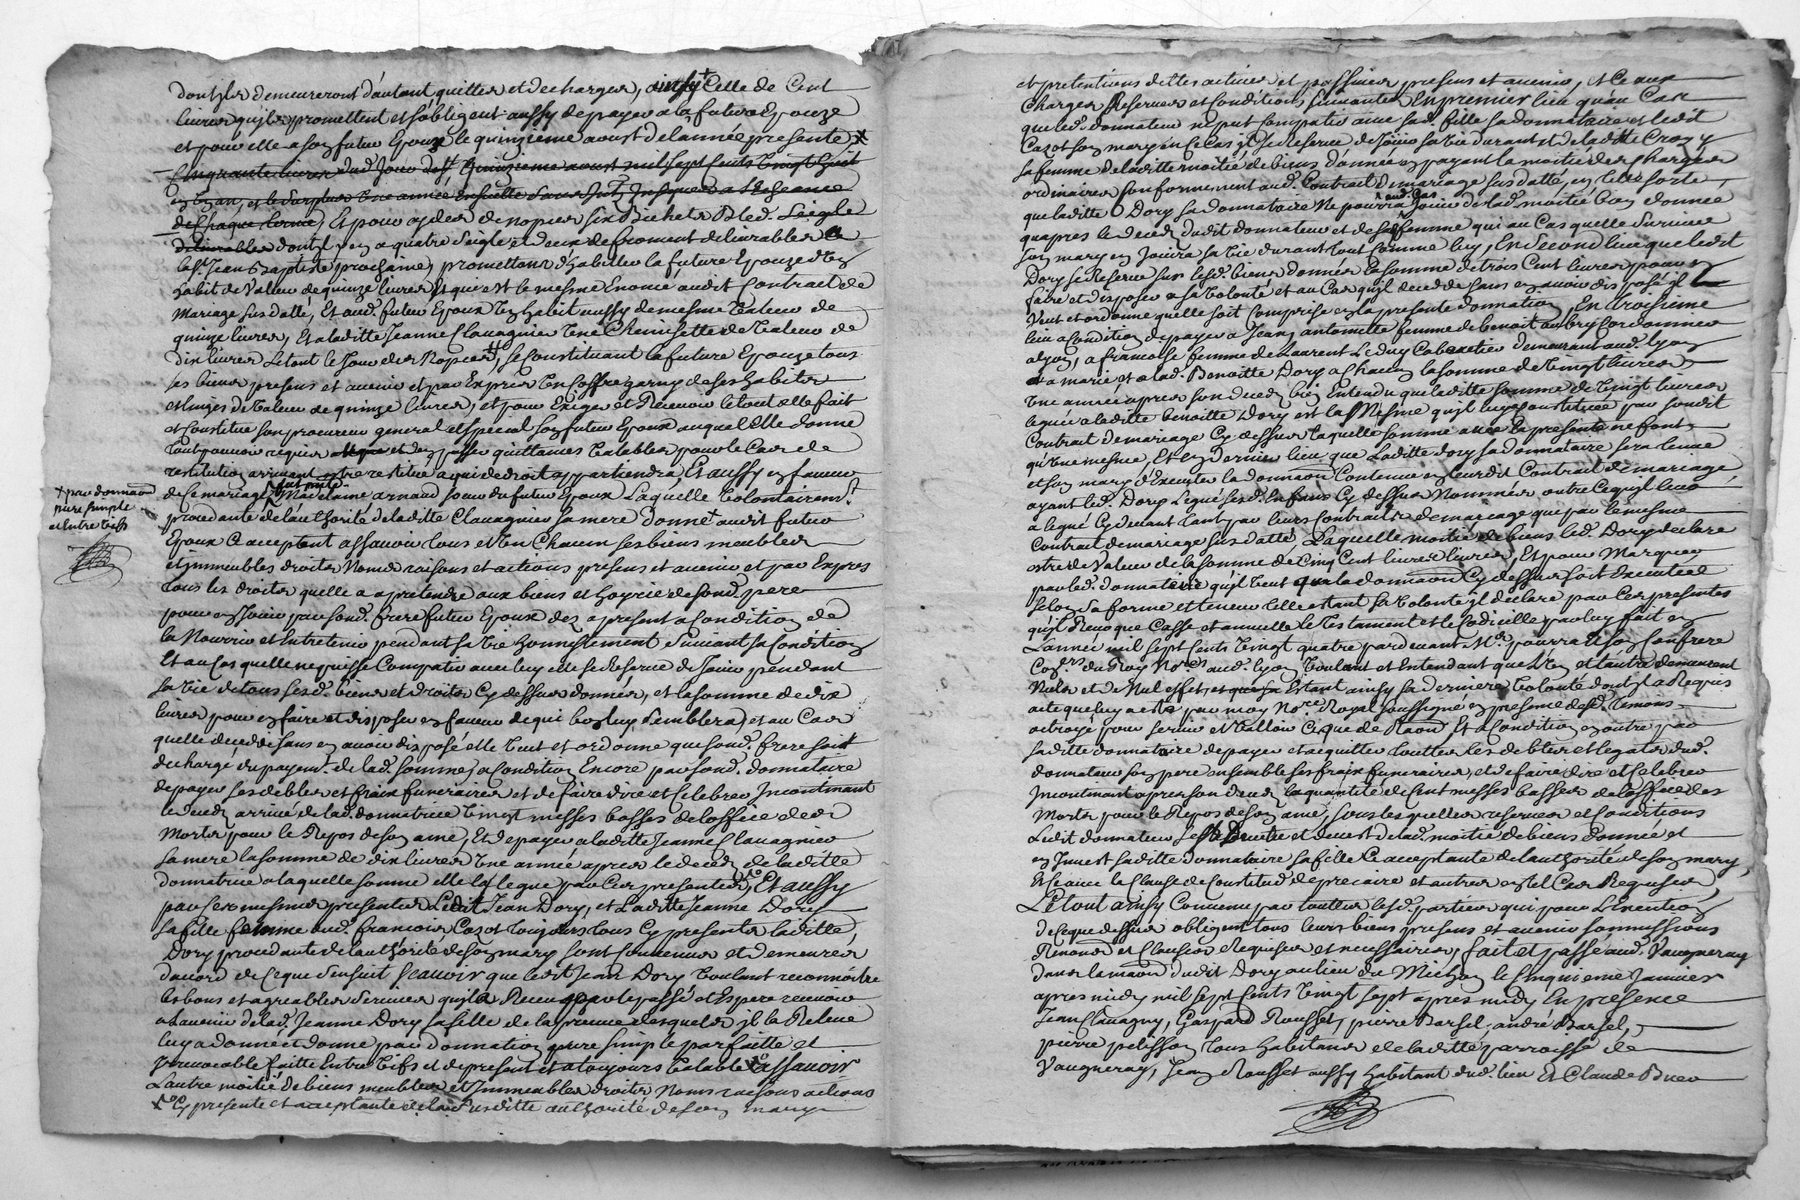 dont ils demeureront d'autant quittes et decharges, celle de Cent
livres qu'ils promettent et s'obligent aussy de payer a la future Epouze
et pour elle a son futur Epoux le quinzieme aoust de lannée presente
Cinquante livres quinzieme aoust mil sept cents vingt huit
et le surplus une année Ensuitte
de chaque terme, Et pour ayder de nopces six Bichets Bled Seigle
dont il y en a quatre Seigle et deux de froment delivrables a
la st. Jean Baptiste prochaine, promettant d'habiller la future Epouze d'un
habit de valleur de quinze livres, qui est le mesme Enoncé audit Contract de
Mariage sus datté, Et aud. futur Epoux un habit aussy de mesme valeur de
quinze livres, Et a laditte Jeanne Clavagnier une Chemisette de valeur de
dix livres Le tout le Jour des Nopces, se Constituant la future Epouze tous
ses biens presens et avenir et par Exprès un Coffre garny de ses habits
et linges de valeur de quinze livres, et pour Exiger et Recevoir le tout elle fait
et Constitue son procureur general et special son futur Epoux auquel Elle donne
tout pouvoir requis et d'en passer quittances valables pour le Cas de
restitution arrivant estre restitué a qui de droit appartiendra, Et aussy en faveur
de ce mariage Madelaine arnaud soeur du futur Epoux Laquelle volontairemt.
procedante de l'authorité de laditte Clavagnier sa mere donne + audit futur
+ par donnaon
pure simple
et Entre vifs
Epoux Ce acceptant assavoir tous et un Chacun ses biens meubles
et immeubles droits Noms raisons et actions presens et avenir et par Expres
tous les droits quelle a a pretendre aux biens et hoyrie de fond. pere
pour en Jouir par sond. frere futur Epoux des a present a Condition de
la Nourrir et Entretenir pendant sa vie honnestement suivant sa Condition
Et au Cas quelle ne puisse Compatir avec luy elle se Reserve de Jouir pendant
sa vie de tous sesd. biens et droits Cy dessus donnés, et la somme de dix
livres pour en faire et disposer en faveur de qui bon luy semblera, et au Cas
quelle decedde sans en avoir disposé elle veut et ordonne que sond. frere soit
dechargé du payemt. de lad. somme, a Condition Encore par sond. donnataire
de payer ses debtes et fraix funeraires et de faire dire et Celebrer Incontinant
le deces arrivé de lad. donnatrice vingt messes basses de loffice des
Morts pour le Repos de son ame, Et de payer a laditte Jeanne Clavagnier
sa mere la somme de dix livres une année apres le deces de laditte
donnatrice a laquelle somme elle la legue par Ces presentes, Et aussy
par Ces mesmes presentes Ledit Jean Dory, et Laditte Jeanne Dory
sa fille femme aud. francois Cazot toujours tous Cy presents laditte
Dory procedante de l'authorité de son mary sont Convenus et demeurés
daccord de Ceque s'ensuit Scavoir que ledit Jean Dory voulant reconnoistre
les bons et agreables services qu'il a Receu par le passé et Espere recevoir
a l'avenir de lad. Jeanne Dory sa fille de la preuve desquels il la Releve
luy a donné et donne par donnation pure simple parfaitte et
Irrevocable faitte Entre vifs et de present et a toujours valable assavoir
Lautre moitié de biens meubles et Immeubles droits Noms raisons actions
Cy presente et acceptante de lad. susditte authorité de son mary
et pretentions dettes actives et passives presens et avenir, et Ce aux
Charges Reserves et Conditions suivantes En premier lieu qu'au Cas
que led. donnateur ne put Compatir avec sad. fille sa donnataire et ledit
Cazot son mary en Ce Cas il se Reserve de Jouir sa vie durant et de laditte Crozy
sa femme de laditte moitié de biens donnée en payant la moitié des charges
ordinaires Conformement aud. Contrait de mariage sus datté, en telle sorte
que laditte Dory sa donnataire Ne pourra aud. Cas Jouir de lad. moitié bien donnée
quapres le deces dudit donnateur et de sa femme qui au Cas quelle survive
son mary en Jouira sa vie durant tout Comme luy, En second lieu que ledit
Dory se Reserve sur lesd. biens donnés la somme de trois Cent livres pour en
faire et disposer a sa volonté et au Cas qu'il decedde sans en avoir disposé il
Veut et ordonne quelle soit Comprise en la presente donnation, En troisieme
lieu a Condition de payer a Jeanne antoinette femme de benoit aubry Cordonnier
a lyon, a francoise femme de Laurent Leduy Cabaretier demeurant aud. lyon
et a marie et a lad. Benoitte Dory a Chacun la somme de vingt livres,
une année apres son deces bien Entendu que laditte somme de vingt livres
leguée a laditte benoitte Dory est la Mesme qu'il luy a Constituée par sondit
Contrait de mariage Cy dessus laquelle somme avec la presente ne font
qu'une mesme, Et en dernier lieu que laditte Dory sa donnataire sera tenue
et son mary d'Executer la donnaon Contenue en leurdit Contrait de mariage
ayant led. Dory Legué sesd. Enfans Cy dessus Nommés outre ce qu'il leur
a legué Cy devant tant par leurs Contraits de mariage que par le mesme
Contrait de mariage sus datté, Laquelle moitié de biens led. Dory declare
estre de Valeur de la somme de Cinq Cent livres livres, Et pour Marquer
par led. donnataire qu'il veut que la donnaon Cy dessus soit Executée
selon sa forme et teneur telle estant sa volonté il declare par Ces presentes
qu'il Revoque Casse et annulle le testament et le Codicille par luy fait en
Lannée mil sept Cents vingt quatre pardevant Me. pourra et son Confrere
Coners. du Roy Nores. aud. lyon voulant et Entendant que l'un et l'autre demeurent
Nuls et de Nul effet, Estant ainsy sa derniere volonté dont il a Requis
acte que luy a esté par moy Nore. Royal soussigné en presence desd. temoins
octroyé pour servir et valloir Ceque de Raison Et a Condition en outre par
saditte donnataire de payer et acquitter touttes les debtes et legats dud.
donnateur son pere ensemble ses fraix funeraires, et de faire dire et Celebrer
Incontinant apres son deces la quantité de Cent messes basses de l'office des
Morts pour le Repos de son ame, sous lesquelles reserves et Conditions
Ledit donnateur se devette et devest de lad. moitié de biens donnée et
en Invest saditte donnataire sa fille Ce acceptante de l'authorité de son mary,
et Ce avec la Clause de Constitut de precaire et autres en tel Cas Requises,
Le tout ainsy Convenu par touttes lesd. parties qui pour L'exention
de Ceque dessus obligent tous leurs biens presens et avenir sommissions
Renonons et Clauses Requises et necessaires, fait et passé aud. Vaugneray
dans la maison dudit Dory au lieu du Michon le Cinquieme Janvier
apres midy mil sept Cents vingt sept apres midy En presence
Jean Clavagny, Gaspard Rousset, pierre Barsel, andré Barsel,
pierre pelisson tous habitans de laditte parroisse de
Vaugneray, Jean Rousset aussy habitant dud. lieu Et Claude Buer